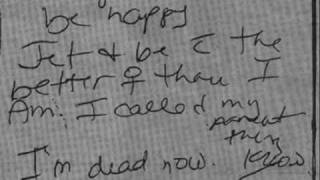 be happy
Jet & be c̄ the
better ♀ than I
Am. I called my
parent
they
know
I'm dead now.